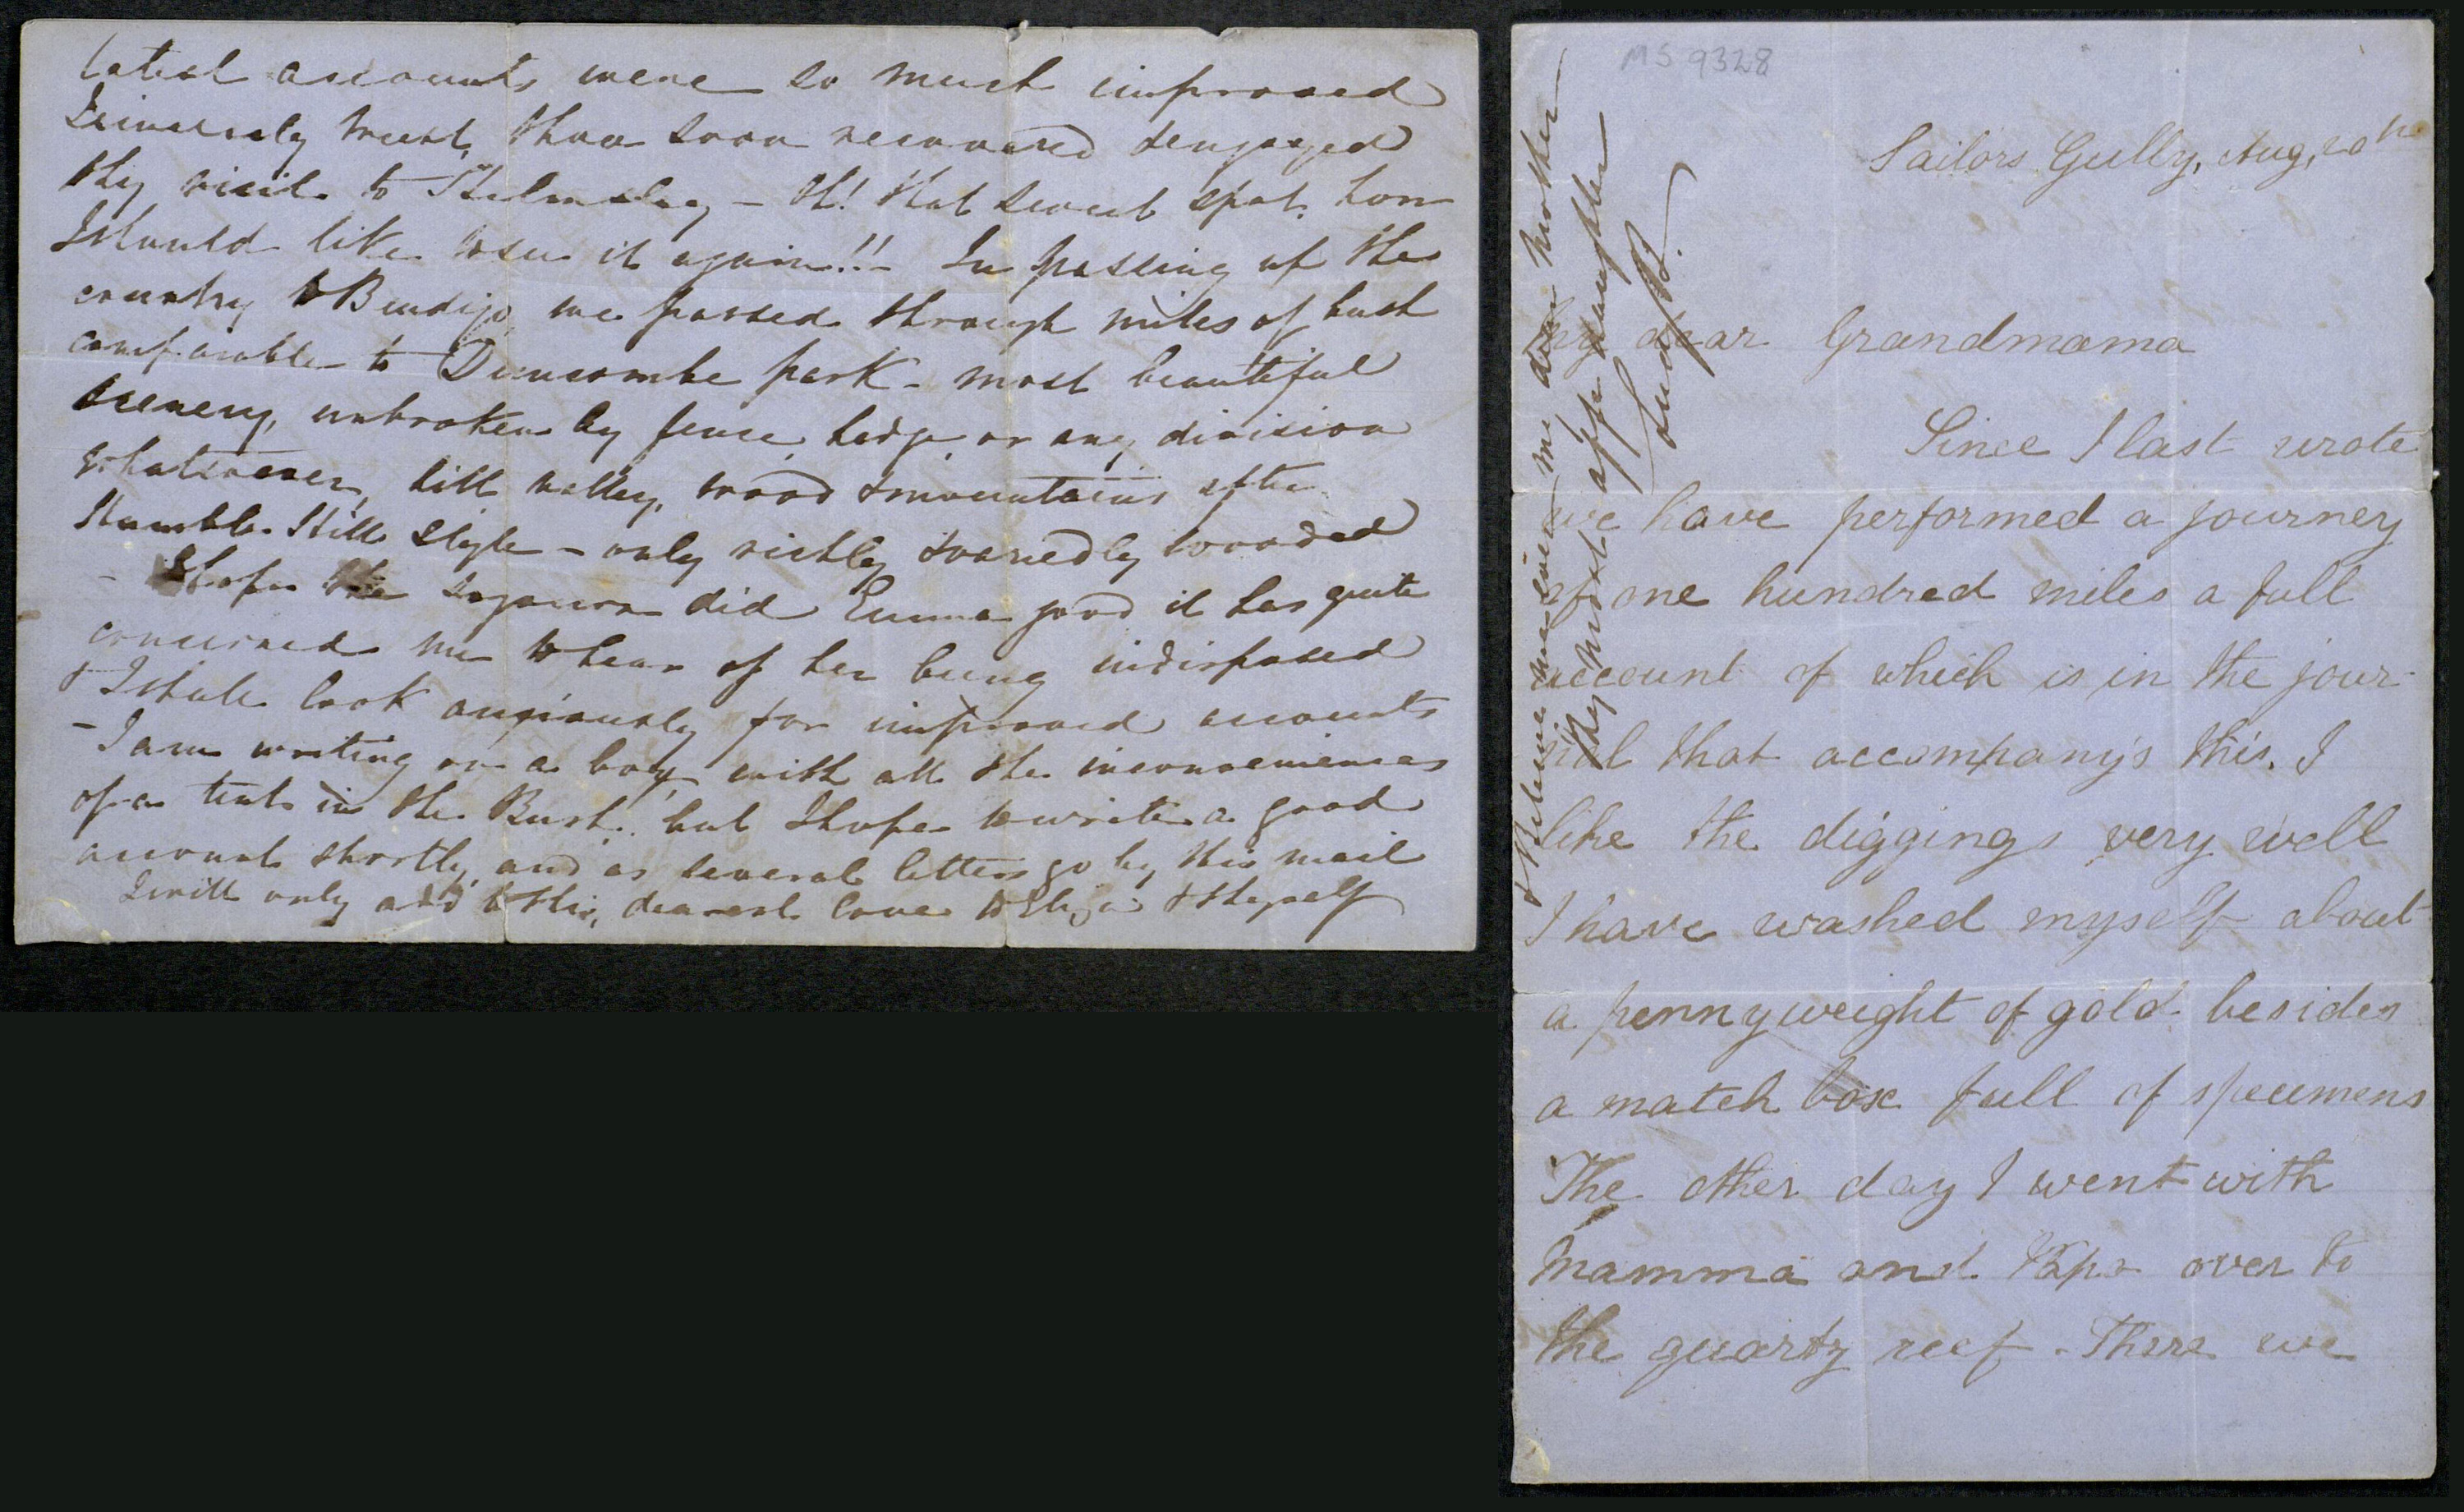 latest accounts were so much improved
I sincerely trust, thou soon recovered & enjoyed
thy visit to Helmsley – Oh! that sweet spot, how
I should like to see it again!! – In passing up the
country to Bendigo, we passed through miles of bush
comparable to Duncombe park – most beautiful
scenery, unbroken by fence, hedge, or any division
whatsoever, hill valley, wood & mountains after
Hamble Hill style – only richly & variedly wooded
– I hope the sojourn did Emma good it has quite
concerned me to hear of her being indisposed
& I shall look anxiously for improved accounts
– I am writing on a box, with all the inconveniences
of a tent in the Bush, but I hope to write a good
account shortly, and as several letters go by this mail
I will only add to this, dearest love to Eliza & thyself
MS 9328
Sailors Gully, Aug, 20th
My dear Grandmama
Since I last wrote
we have performed a journey
of one hundred miles a full
account of which is in the jour-
nal that accompany's this. I
like the diggings very well
I have washed myself about
a pennyweight of gold besides
a match box full of specimens
The other day I went with
Mamma and Papa over to
the quartz reef. There we
& Believe me ever my dear Mother
thy most affte daughter